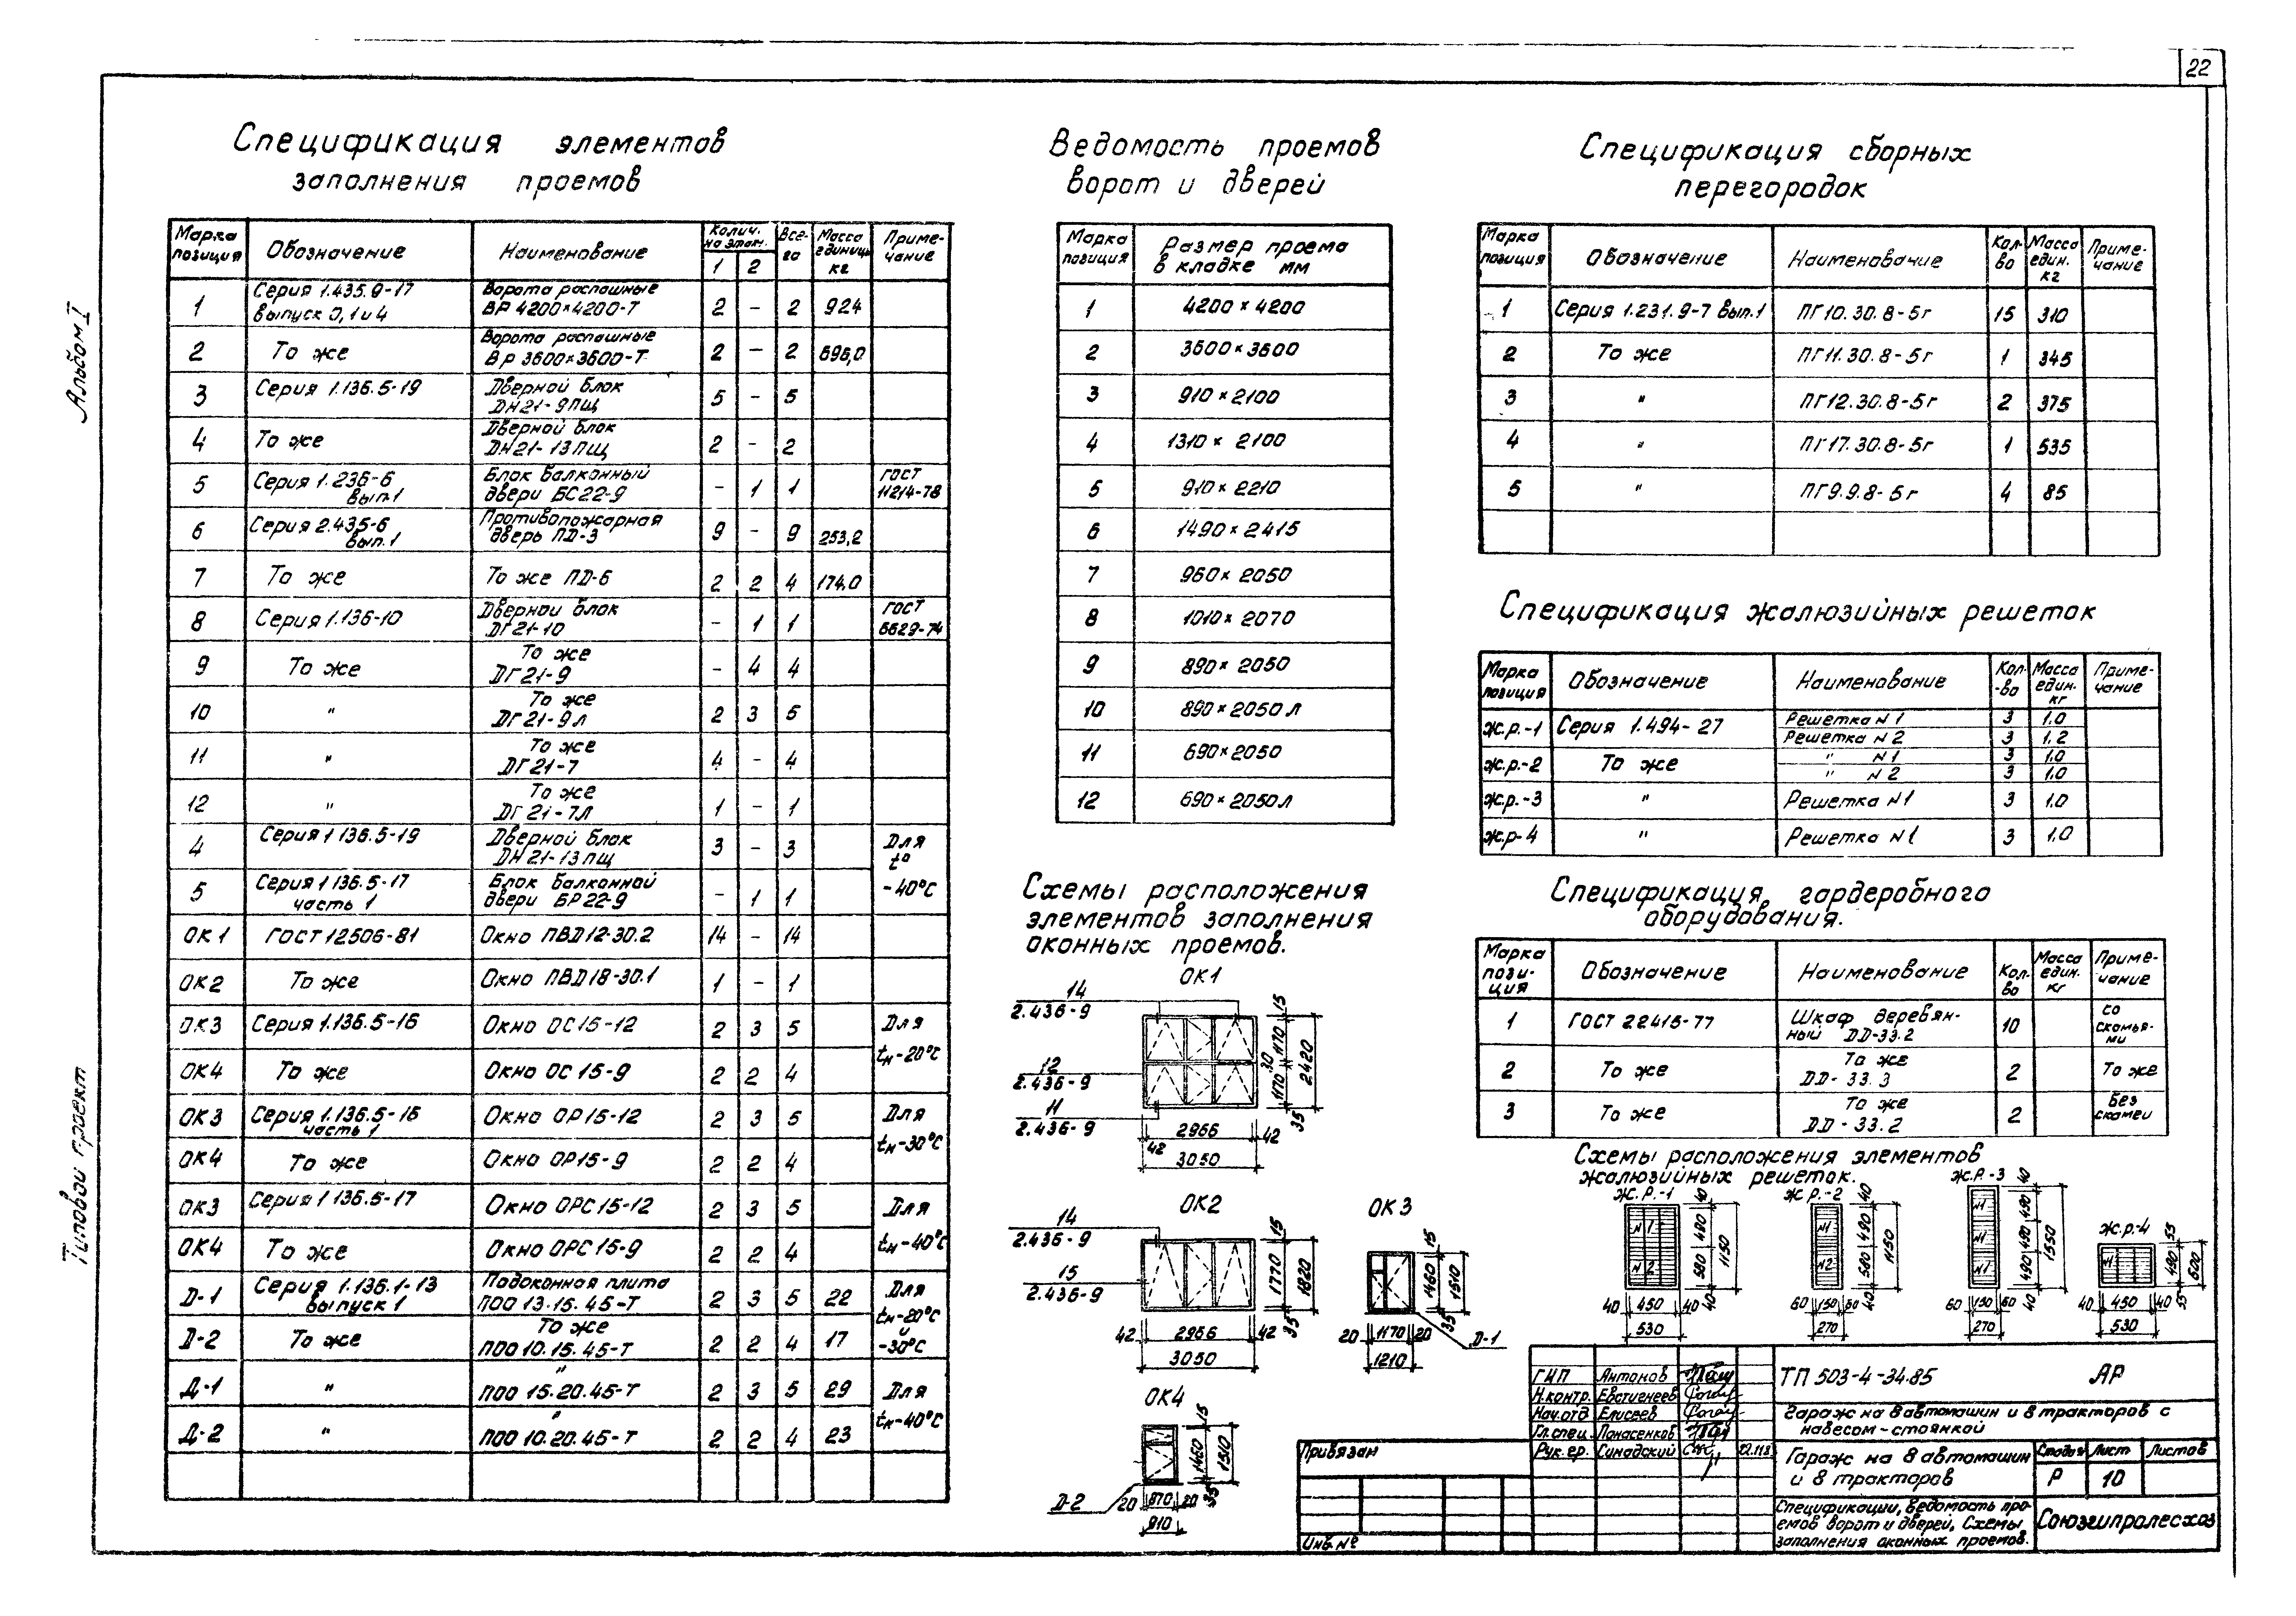 22
Альбом I
Типовой проект
Спецификация элементов
заполнения проемов
Марка позиция | Обозначение | Наименование | Колич. на этаж. 1 2 | Все-го | Масса единиц кг | Приме-чание
1 | Серия 1.435.9-17 выпуск 0,1 и 4 | Ворота распашные ВР 4200×4200-Т | 2 | - | 2 | 924
2 | То же | Ворота распашные ВР 3600×3600-Т | 2 | - | 2 | 696,0
3 | Серия 1.136.5-19 | Дверной блок ДН21-9ПЩ | 5 | - | 5
4 | То же | Дверной блок ДН21-13ПЩ | 2 | - | 2
5 | Серия 1.236-6 вып.1 | Блок балконный двери БС22-9 | - | 1 | 1 | ГОСТ 11214-78
6 | Серия 2.435-6 вып.1 | Противопожарная дверь ПД-3 | 9 | - | 9 | 253,2
7 | То же | То же ПД-6 | 2 | 2 | 4 | 174,0
8 | Серия 1.136-10 | Дверной блок ДГ21-10 | - | 1 | 1 | ГОСТ 6629-74
9 | То же | То же ДГ21-9 | - | 4 | 4
10 | " | То же ДГ21-9л | 2 | 3 | 5
11 | " | То же ДГ21-7 | 4 | - | 4
12 | " | То же ДГ21-7Л | 1 | - | 1
4 | Серия 1 136.5-19 | Дверной блок ДН21-13ПЩ | 3 | - | 3 | Для t° -40°С
5 | Серия 1 136.5-17 часть 1 | Блок балконной двери БР22-9 | - | 1 | 1
ОК1 | ГОСТ 12506-81 | Окно ПВД12-30.2 | 14 | - | 14
ОК2 | То же | Окно ПВД18-30.1 | 1 | - | 1
ОК3 | Серия 1.136.5-16 | Окно ОС15-12 | 2 | 3 | 5 | Для tн-20°С
ОК4 | То же | Окно ОС 15-9 | 2 | 2 | 4
ОК3 | Серия 1.136.5-16 часть 1 | Окно ОР15-12 | 2 | 3 | 5 | Для tн-30°С
ОК4 | То же | Окно ОР15-9 | 2 | 2 | 4
ОК3 | Серия 1 136.5-17 | Окно ОРС15-12 | 2 | 3 | 5 | Для tн-40°С
ОК4 | То же | Окно ОРС15-9 | 2 | 2 | 4
Д-1 | Серия 1.136.1-13 выпуск 1 | Подоконная плита ПОО 13.15.45-Т | 2 | 3 | 5 | 22 | Для tн-20°С и -30°С
Д-2 | То же | То же ПОО 10.15.45-Т | 2 | 2 | 4 | 17
Д-1 | " | " ПОО 15.20.45-Т | 2 | 3 | 5 | 29 | Для tн-40°С
Д-2 | " | " ПОО 10.20.45-Т | 2 | 2 | 4 | 23
Ведомость проемов
ворот и дверей
Марка позиция | Размер проема в кладке мм
1 | 4200×4200
2 | 3600×3600
3 | 910×2100
4 | 1310×2100
5 | 910×2210
6 | 1490×2415
7 | 960×2050
8 | 1010×2070
9 | 890×2050
10 | 890×2050л
11 | 690×2050
12 | 690×2050л
Схемы расположения
элементов заполнения
оконных проемов.
ОК1
14
2.436-9
12
2.436-9
11
2.436-9
15 1170 30 1170 35 2420
42 2966 42
3050
ОК2
14
2.436-9
15
2.436-9
15 1770 35 1820
42 2966 42
3050
ОК3
15 1460 35 1510
20 1170 20
1210
Д-1
ОК4
15 1460 35 1510
20 870 20
910
Д-2
Спецификация сборных
перегородок
Марка позиция | Обозначение | Наименование | Кол-во | Масса един. кг | Приме-чание
1 | Серия 1.231.9-7 вып.1 | ПГ10.30.8-5г | 15 | 310
2 | То же | ПГ11.30.8-5г | 1 | 345
3 | " | ПГ12.30.8-5г | 2 | 375
4 | " | ПГ17.30.8-5г | 1 | 535
5 | " | ПГ9.9.8-5г | 4 | 85
Спецификация жалюзийных решеток
Марка позиция | Обозначение | Наименование | Кол-во | Масса един. кг | Приме-чание
ж.р.-1 | Серия 1.494-27 | Решетка N1 | 3 | 1,0
Решетка N2 | 3 | 1,2
ж.р.-2 | То же | " N1 | 3 | 1,0
" N2 | 3 | 1,0
ж.р.-3 | " | Решетка N1 | 3 | 1,0
ж.р-4 | " | Решетка N1 | 3 | 1,0
Спецификация гардеробного
оборудования.
Марка пози-ция | Обозначение | Наименование | Кол-во | Масса един. кг | Приме-чание
1 | ГОСТ 22415-77 | Шкаф деревян-ный ДД-33.2 | 10 | со скамья-ми
2 | То же | То же ДД-33.3 | 2 | То же
3 | То же | То же ДД-33.2 | 2 | Без скамеи
Схемы расположения элементов
жалюзийных решеток.
Ж.Р.-1
N1
N2
40 490 580 40 1150
40 450 40
530
Ж.Р.-2
N1
N2
40 490 580 40 1150
60 150 60
270
Ж.Р.-3
N1
N1
N1
40 490 490 490 40 1550
60 150 60
270
Ж.Р.-4
55 490 55 600
40 450 40
530
ГИП Антонов
Н.контр. Евстигнеев
Нач.отд Елисеев
Гл.спец. Панасенков
Рук.гр. Санадский
Привязан
Инв. №
ТП 503-4-34.85 АР
Гараж на 8 автомашин и 8 тракторов с
навесом-стоянкой
Гараж на 8 автомашин
и 8 тракторов
Стадия Лист Листов
Р 10
Спецификации, ведомость про-
емов ворот и дверей, Схемы
заполнения оконных проемов.
Союзгипролесхоз